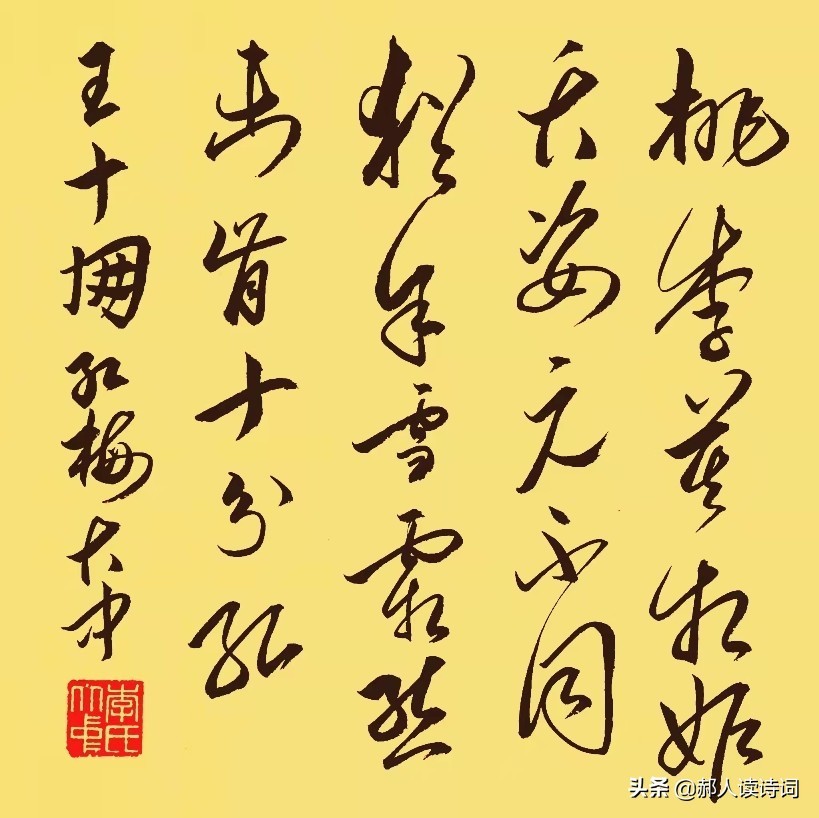 桃李莫相妒
夭姿元不同
犹余雪霜态
未肯十分红
王十朋 红梅 大中
李氏大中
头条 @郝人读诗词